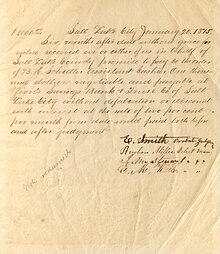 1000.00 Salt Lake City January 20. 1875
Six months after date without grace for
value received we or either of us in behalf of
Salt Lake County promise to pay to the order
of B. H. Schettler Assistant Cashier One thou
sand dollars negotiable and payable at
Savings Bank & Trust Co of Salt
Lake City without defalcation or discount
with interest at the rate of per cent
per month from date until paid both before
and after judgment
E. Smith Probate Judge
Reuben Miller Select man
J.
E. M.